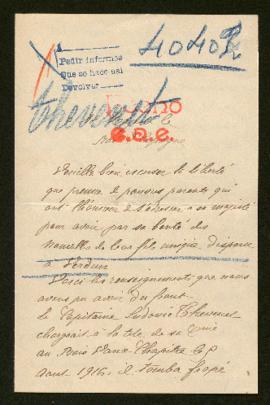 Pedir informes
Que se hace así
Devolver
40402
Thevenet
e.a.e.
Veuillez bien excuser la liberté
que prennent de pauvres parents qui
ont l'honneur de s'adresser à sa majesté
pour avoir par sa bonté des
nouvelles de leur fils unique disparu
à Verdun
Voici les renseignements que nous
avons pu avoir du front
le Capitaine Ludovic Thevenet
chargeait à la tête de sa Cie
au Bois Vaux Chapitre le
août 1916. il tomba frappé